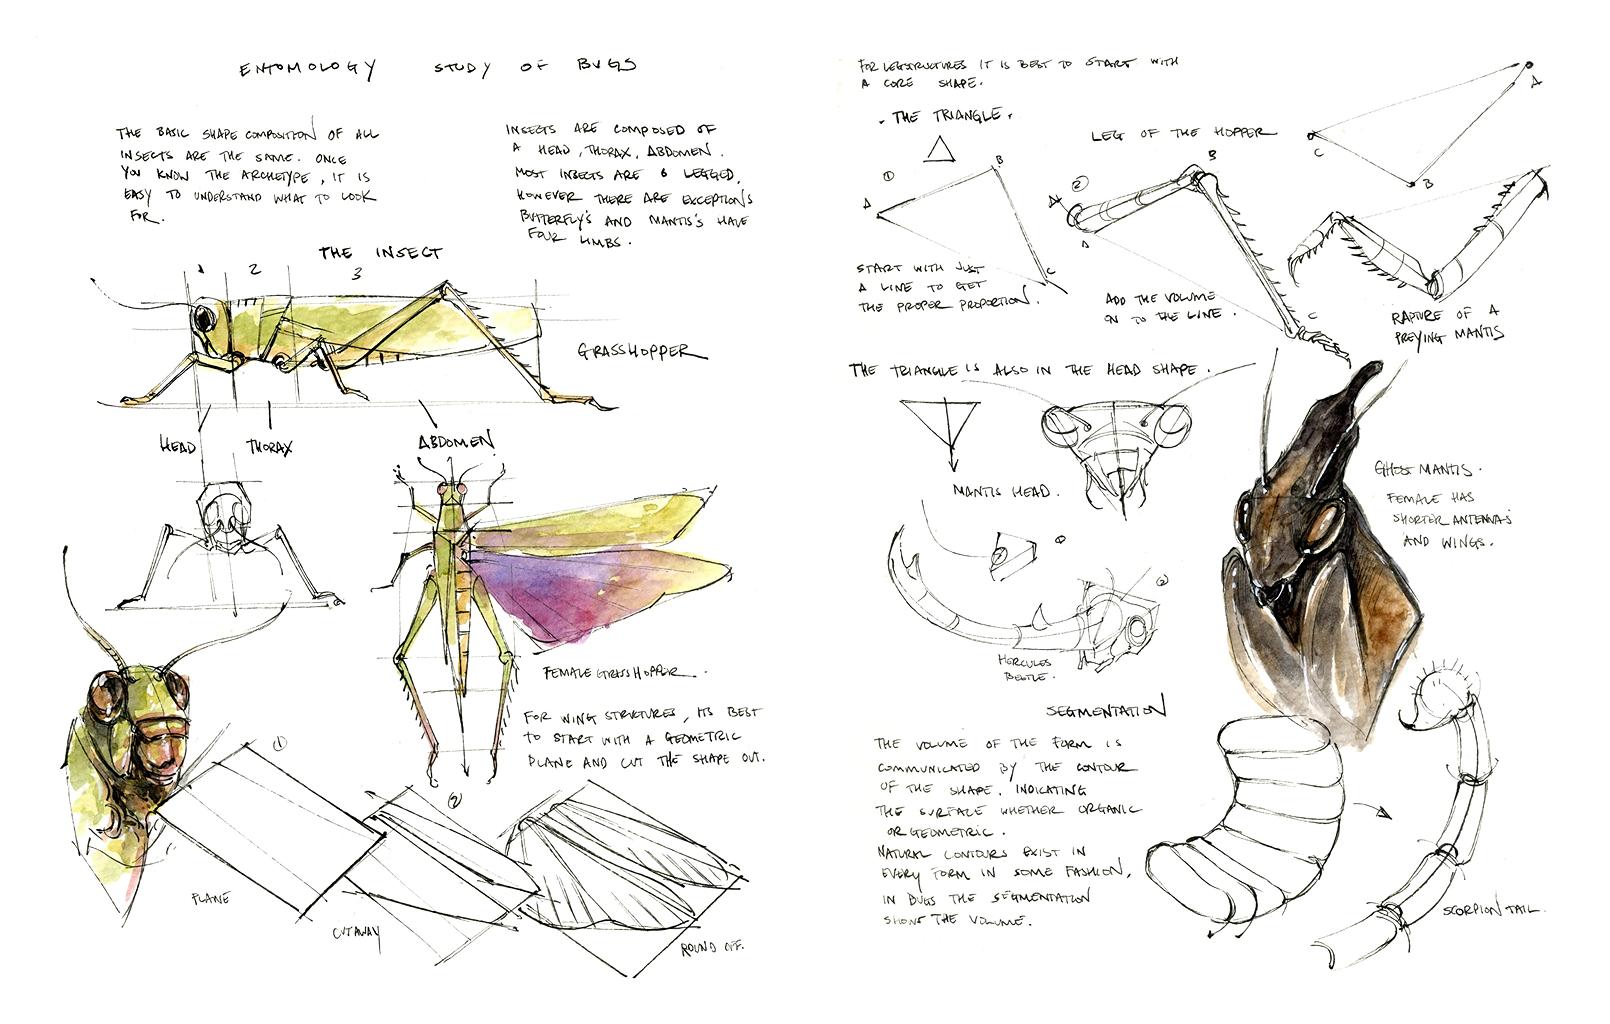 ENTOMOLOGY STUDY OF BUGS
THE BASIC SHAPE COMPOSITION OF ALL
INSECTS ARE THE SAME. ONCE
YOU KNOW THE ARCHETYPE, IT IS
EASY TO UNDERSTAND WHAT TO LOOK
FOR.
INSECTS ARE COMPOSED OF
A HEAD, THORAX, ABDOMEN.
MOST INSECTS ARE 6 LEGGED,
HOWEVER THERE ARE EXCEPTIONS
BUTTERFLY'S AND MANTIS'S HAVE
FOUR LIMBS.
THE INSECT
1 2 3
GRASSHOPPER
HEAD THORAX ABDOMEN
FEMALE GRASSHOPPER.
FOR WING STRUCTURES, ITS BEST
TO START WITH A GEOMETRIC
PLANE AND CUT THE SHAPE OUT.
1
PLANE
2
CUTAWAY
ROUND OFF.
FOR LEG STRUCTURES IT IS BEST TO START WITH
A CORE SHAPE.
. THE TRIANGLE .
LEG OF THE HOPPER
1
A B C
START WITH JUST
A LINE TO GET
THE PROPER PROPORTION.
2
A B C
ADD THE VOLUME
ON TO THE LINE.
A B C
RAPTURE OF A
PREYING MANTIS
THE TRIANGLE IS ALSO IN THE HEAD SHAPE.
MANTIS HEAD.
GHOST MANTIS.
FEMALE HAS
SHORTER ANTENNAS
AND WINGS.
1
2
HERCULES
BEETLE.
SEGMENTATION
THE VOLUME OF THE FORM IS
COMMUNICATED BY THE CONTOUR
OF THE SHAPE. INDICATING
THE SURFACE WHETHER ORGANIC
OR GEOMETRIC.
NATURAL CONTOURS EXIST IN
EVERY FORM IN SOME FASHION,
IN BUGS THE SEGMENTATION
SHOWS THE VOLUME.
SCORPION TAIL.